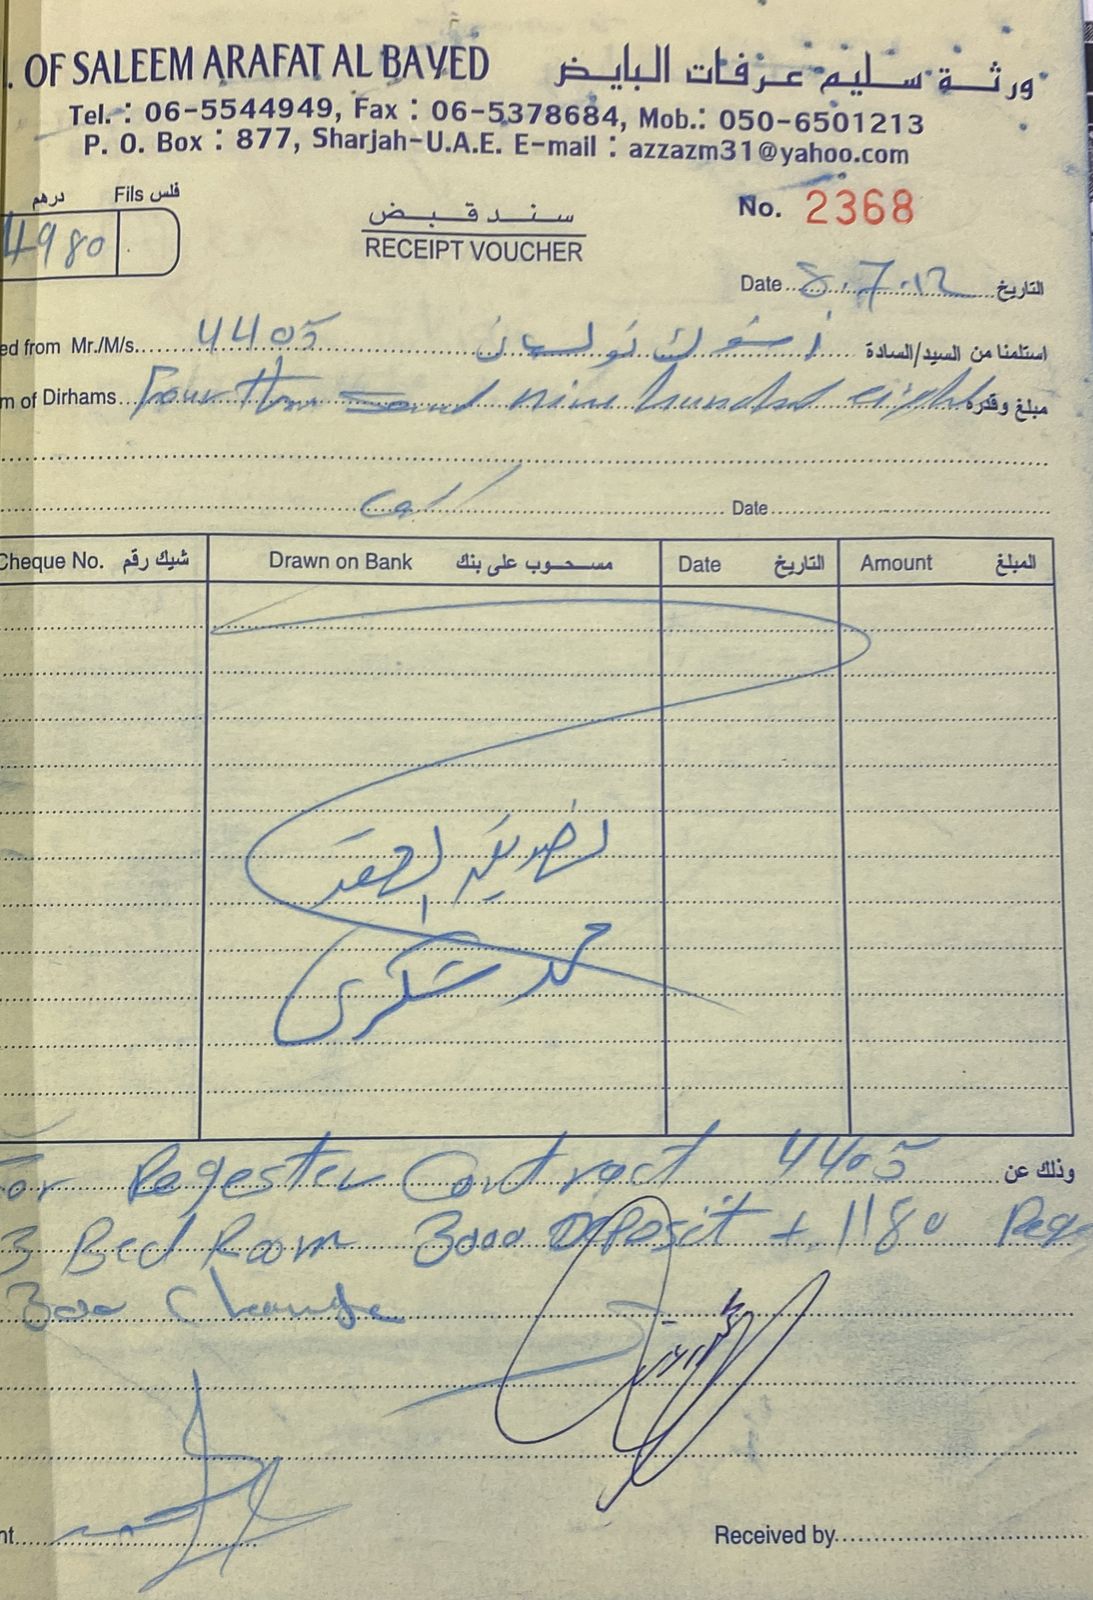 . OF SALEEM ARAFAT AL BAYED ورثة سليم عرفات البايض
Tel. : 06-5544949, Fax : 06-5378684, Mob.: 050-6501213
P. O. Box : 877, Sharjah-U.A.E. E-mail : azzazm31@yahoo.com
درهم Fils فلس
4980
سند قبض
RECEIPT VOUCHER
No. 2368
Date 8.7.12 التاريخ
ed from Mr./M/s. 4405 استلمنا من السيد/السادة
m of Dirhams Four thousand nine hundred eighty مبلغ وقدره
Date
Cheque No. شيك رقم Drawn on Bank مسحوب على بنك Date التاريخ Amount المبلغ
محمد شكرى
For Regester Contract 4405 وذلك عن
3 Bed Room 3000 Deposit + 1180 Rege
300 Change
nt Received by